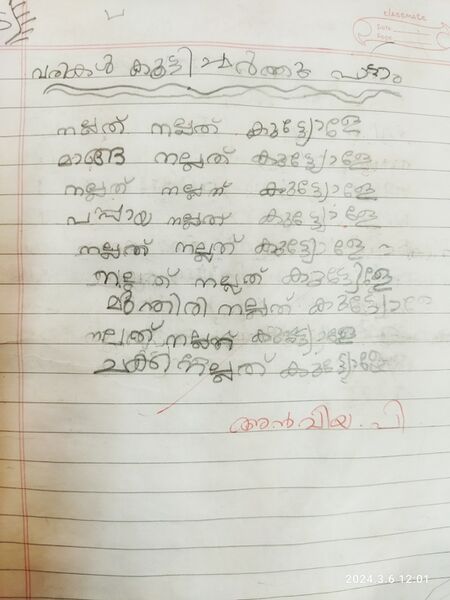 classmate
Date
Page
വരികൾ കൂട്ടി ചേർത്തു പാടാം
നല്ലത് നല്ലത് കൂട്ട്യോളേ
മാങ്ങ നല്ലത് കൂട്ട്യോളേ
നല്ലത് നല്ലത് കൂട്ട്യോളേ
പപ്പായ നല്ലത് കൂട്ട്യോളേ
നല്ലത് നല്ലത് കൂട്ട്യോളേ
നല്ലത് നല്ലത് കൂട്ട്യോളേ
മുന്തിരി നല്ലത് കൂട്ട്യോളേ
നല്ലത് നല്ലത് കൂട്ട്യോളേ
നല്ലത് കൂട്ട്യോളേ
അൻവിയ. പി
2024.3.6 12:01